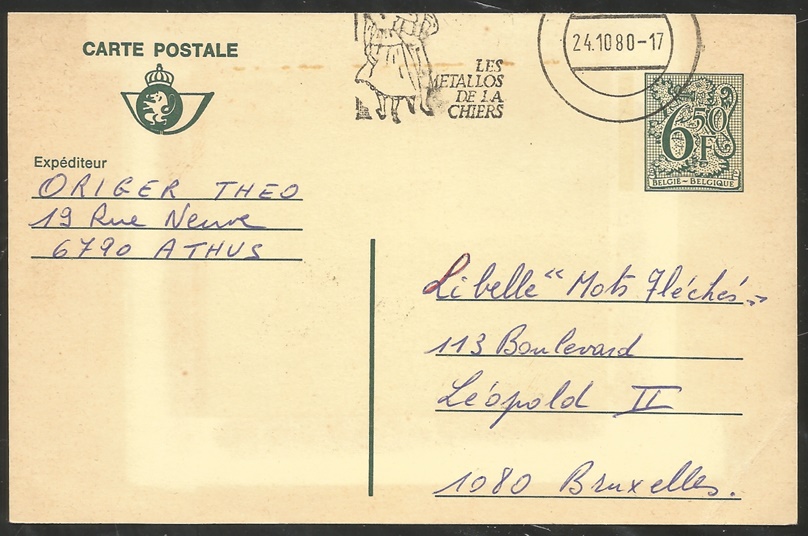 CARTE POSTALE
LES
METALLOS
DE LA
CHIERS
24.10 80-17
6,50
F
BELGIË-BELGIQUE
Expéditeur
ORIGER THEO
19 Rue Neuve
6790 ATHUS
Libelle "Mots Fléchés"
113 Boulevard
Léopold II
1080 Bruxelles.